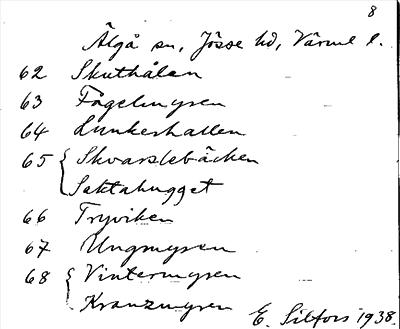 8
Älgå sn, Jösse hd, Värml l.
62 Skuthålan
63 Fågelmyren
64 Lunkerhallen
65 { Skvarslebäcken
Saktahugget
66 Tryviken
67 Ungmyren
68 { Vintermyren
Kranzmyren
E. Silfors 1938.